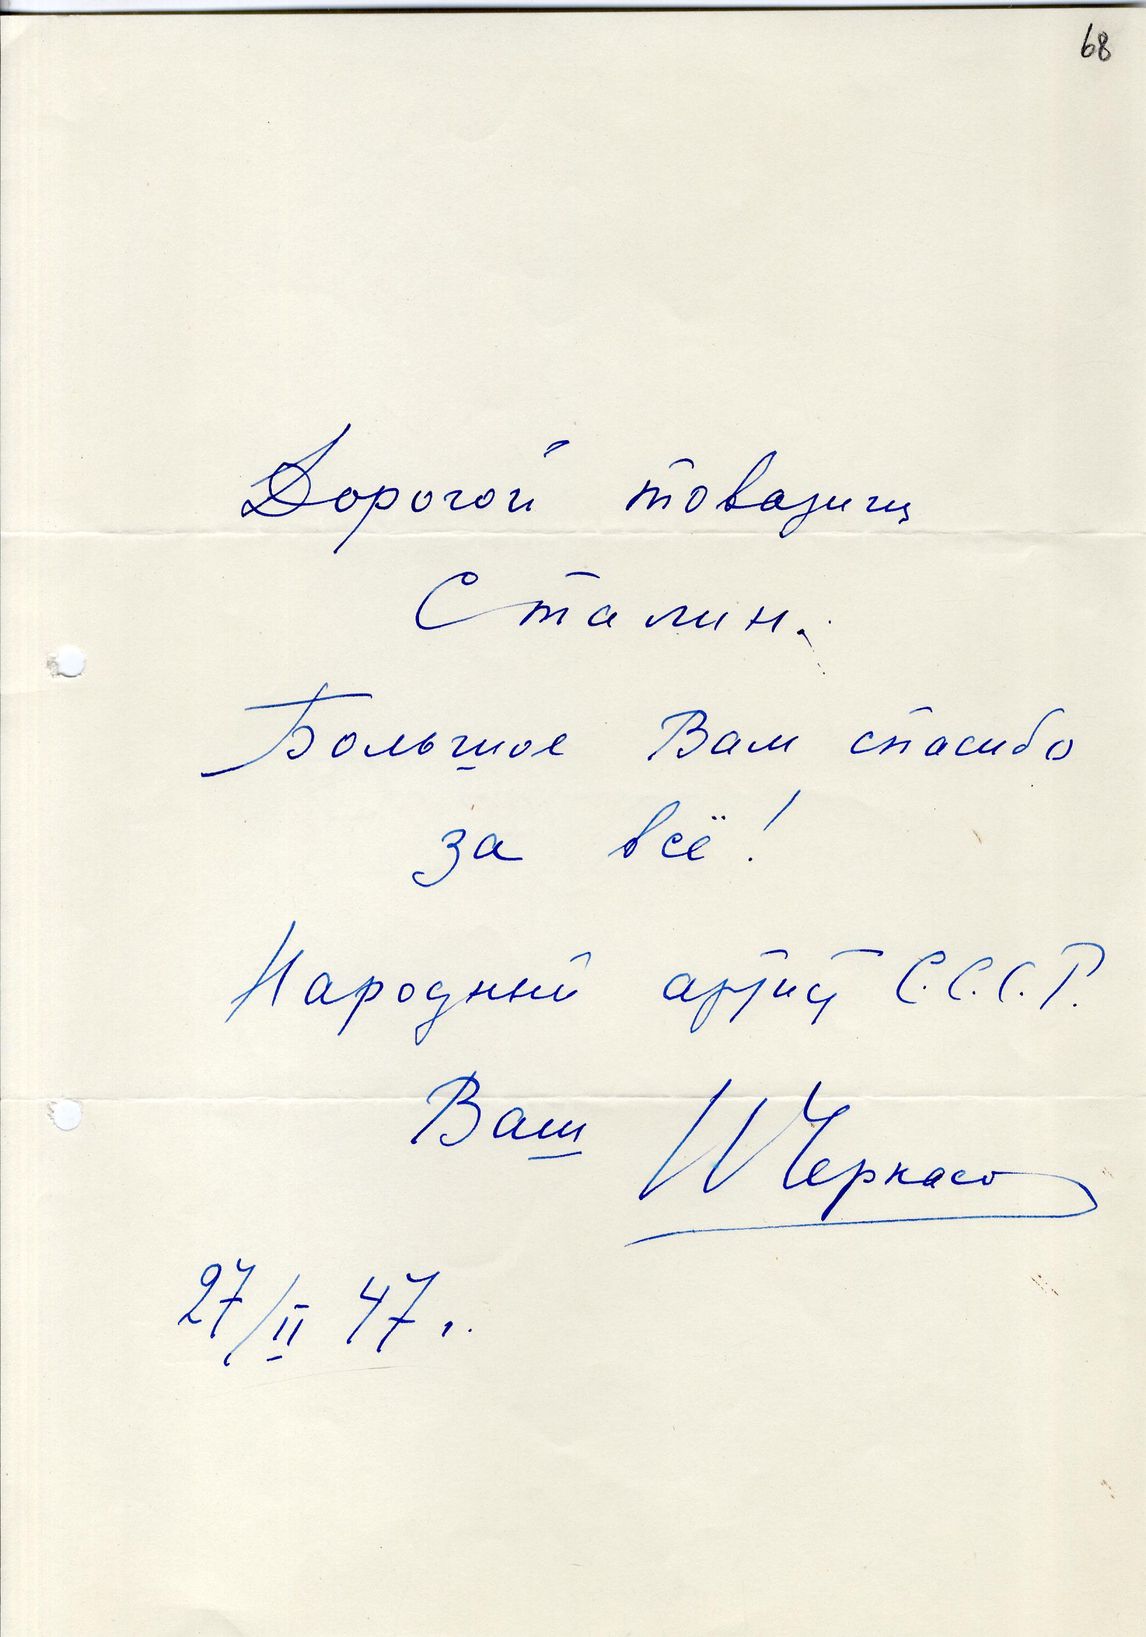 68
Дорогой товарищ
Сталин.
Большое Вам спасибо
за всё!
Народный артист С.С.С.Р.
Ваш Н Черкасов
27/II 47г.